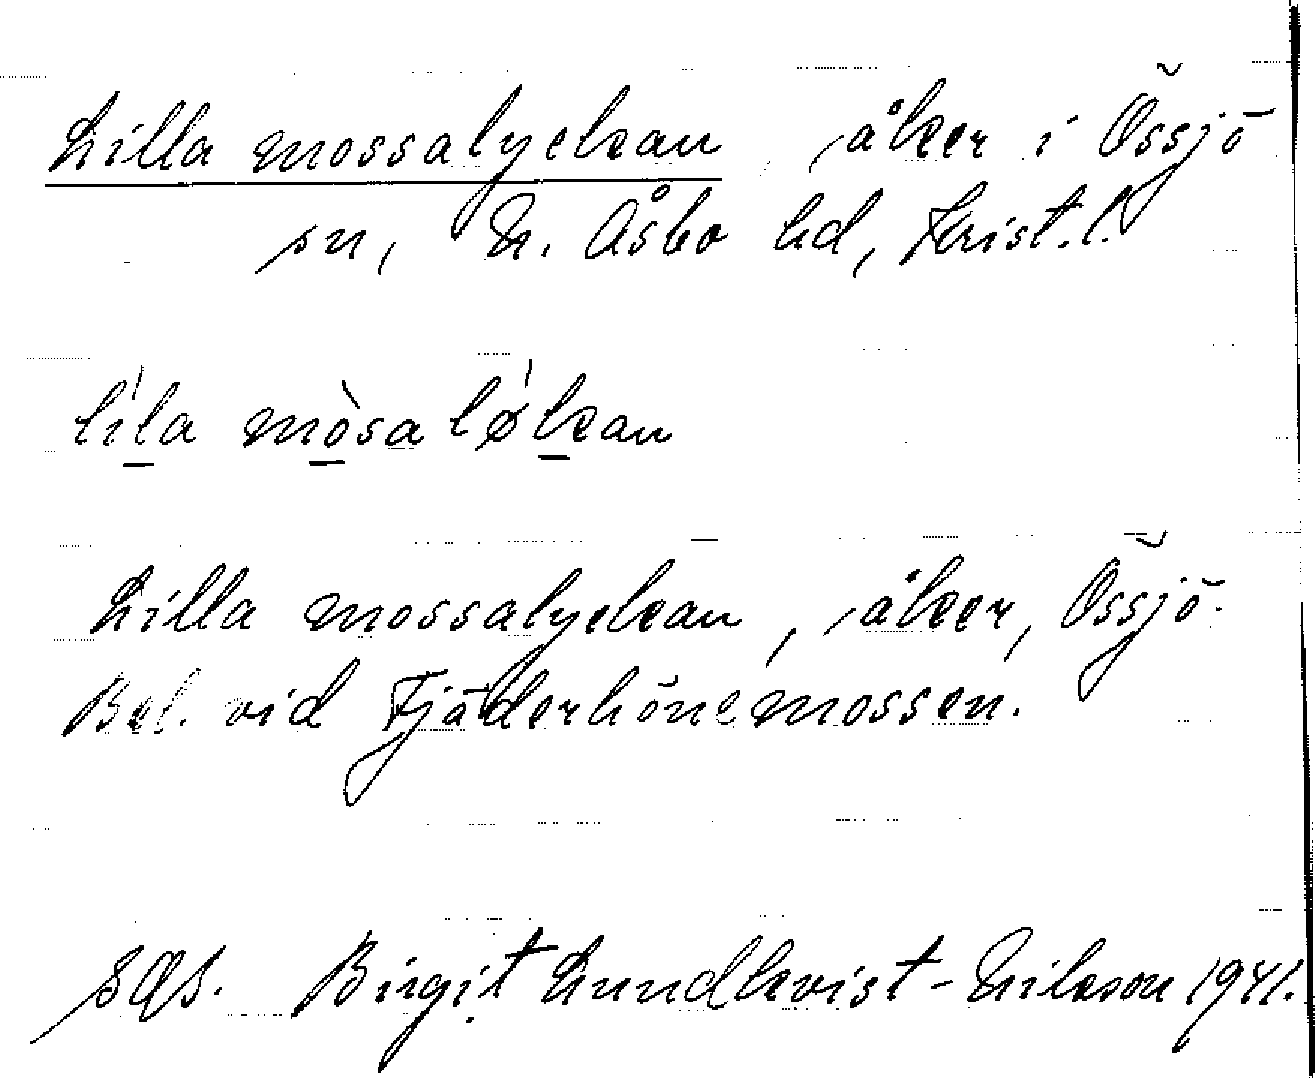 Lilla mossalyckan, åker i Össjö
sn, N. Åsbo hd, Krist. l.
lila mòsa løkan
Lilla mossalyckan, åker, Össjö.
Bel. vid Fjäderhönemossen.
SOS. Birgit Lundkvist-Nilsson 1941.